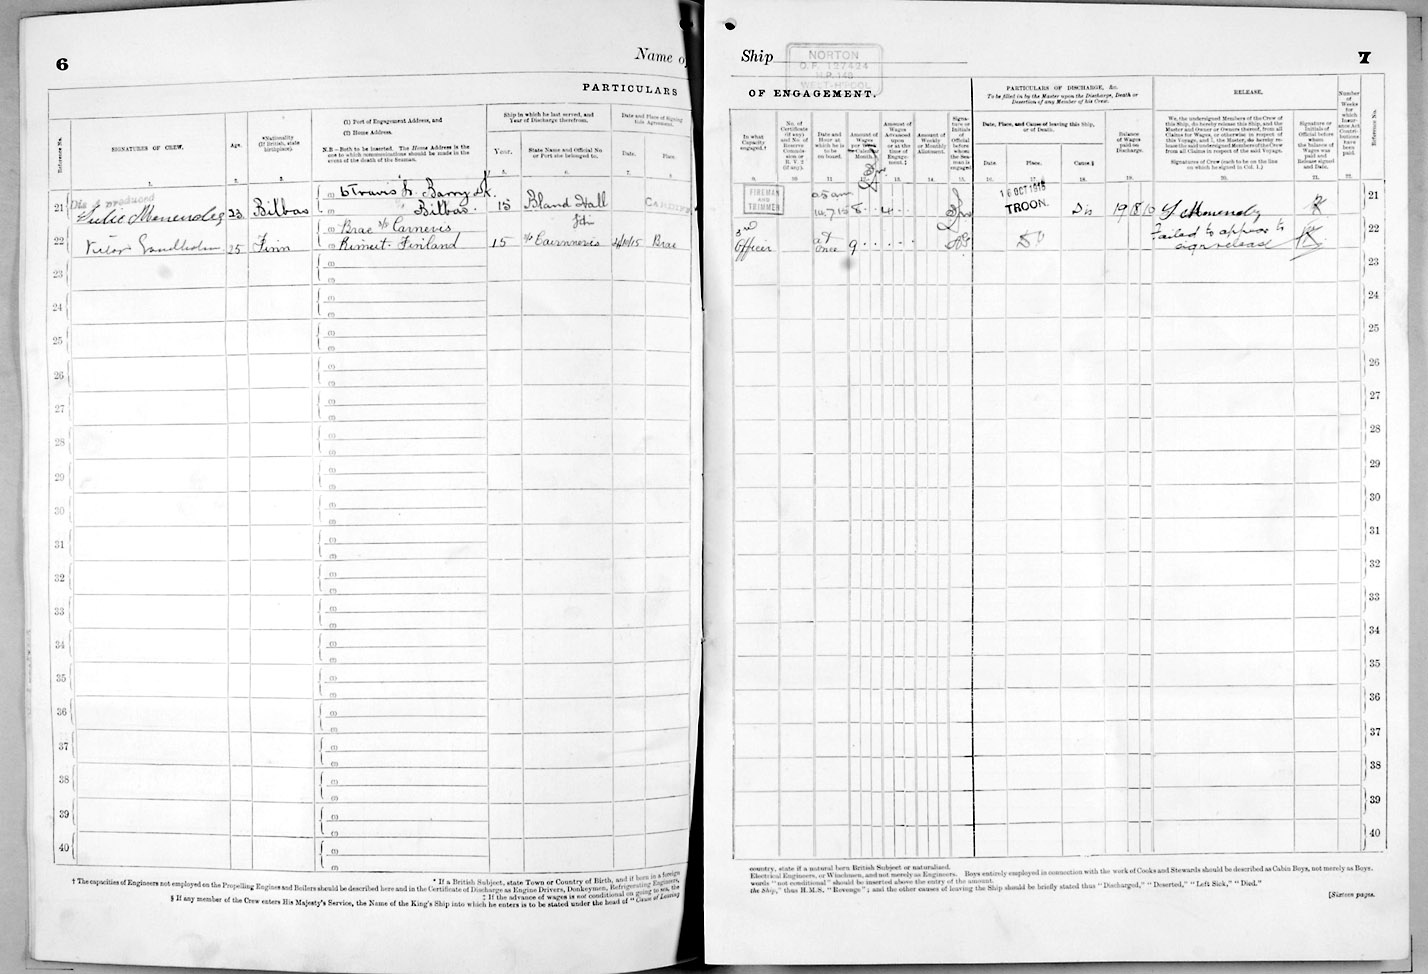 6
Name of
PARTICULARS
Reference No.
SIGNATURES OF CREW.
Age.
*Nationality
(If British, state
birthplace).
(1) Port of Engagement Address, and
(2) Home Address.
N.B.—Both to be inserted. The Home Address is the
one to which communications should be made in the
event of the death of the Seaman.
Ship in which he last served, and
Year of Discharge therefrom.
Year.
State Name and Official No
or Port she belonged to.
Date and Place of Signing
this Agreement.
Date.
Place.
1.
2.
3.
5.
6.
7.
8.
Dis A produced
21
Julie Menendez
23
Bilbao
(1) 6 Travis St. Barry Dk.
(2) Bilbao.
15
Bland Hall
CARDIFF
22
25
Finn
Brae s/s
Finland
15
Brae
23
24
25
26
27
28
29
30
31
32
33
34
35
36
37
38
39
40
* If a British Subject, state Town or Country of Birth, and if born in a foreign
† The capacities of Engineers not employed on the Propelling Engines and Boilers should be described here and in the Certificate of Discharge as Engine Drivers, Donkeymen, Refrigerating Engineers,
‡ If the advance of wages is not conditional on going to sea, the
§ If any member of the Crew enters His Majesty's Service, the Name of the King's Ship into which he enters is to be stated under the head of "Cause of Leaving
Ship
NORTON
O.F. 127424
7
OF ENGAGEMENT.
PARTICULARS OF DISCHARGE, &c.
To be filled in by the Master upon the Discharge, Death or
Desertion of any Member of his Crew.
RELEASE.
In what
Capacity
engaged.†
No. of
Certificate
(if any)
and No. of
Reserve
Commis-
sion or
R. V. 2
(if any).
Date and
Hour at
which he is
to be
on board.
Amount of
Wages
per Calendar
Month.
Amount of
Wages
Advanced
upon
or at the
time of
Engage-
ment.‡
Amount of
Weekly
or Monthly
Allotment.
Signa-
ture or
Initials
of
Official
before
whom
the Sea-
man is
engaged
Date, Place, and Cause of leaving this Ship,
or of Death.
Date.
Place.
Cause.§
Balance
of Wages
paid on
Discharge.
We, the undersigned Members of the Crew of
this Ship, do hereby release this Ship, and the
Master and Owner or Owners thereof, from all
Claims for Wages, or otherwise in respect of
this Voyage, and I, the Master, do hereby re-
lease the said undersigned Members of the Crew
from all Claims in respect of the said Voyage.
Signatures of Crew (each to be on the line
on which he signed in Col. 1.)
Signature or
Initials of
Official before
whom
the balance of
Wages was
paid and
Release signed
and Date.
Number
of
Weeks
for
which
Insur-
ance Act
Contri-
butions
have
been
paid.
Reference No.
9.
10
11.
12.
13.
14.
15.
16.
17.
18.
19.
20.
21.
22.
FIREMAN
AND
TRIMMER
14.7.15
8
4
16 OCT 1915
TROON.
Dis
19 18 10
J Menendez
21
3rd
Officer
at
once
9
Failed to appear to
sign release
22
23
24
25
26
27
28
29
30
31
32
33
34
35
36
37
38
39
40
country, state if a natural born British Subject or naturalised.
Electrical Engineers, or Winchmen, and not merely as Engineers. Boys entirely employed in connection with the work of Cooks and Stewards should be described as Cabin Boys, not merely as Boys.
words "not conditional" should be inserted above the entry of the amount.
the Ship," thus H.M.S. "Revenge"; and the other causes of leaving the Ship should be briefly stated thus "Discharged," "Deserted," "Left Sick," "Died."
[Sixteen pages.